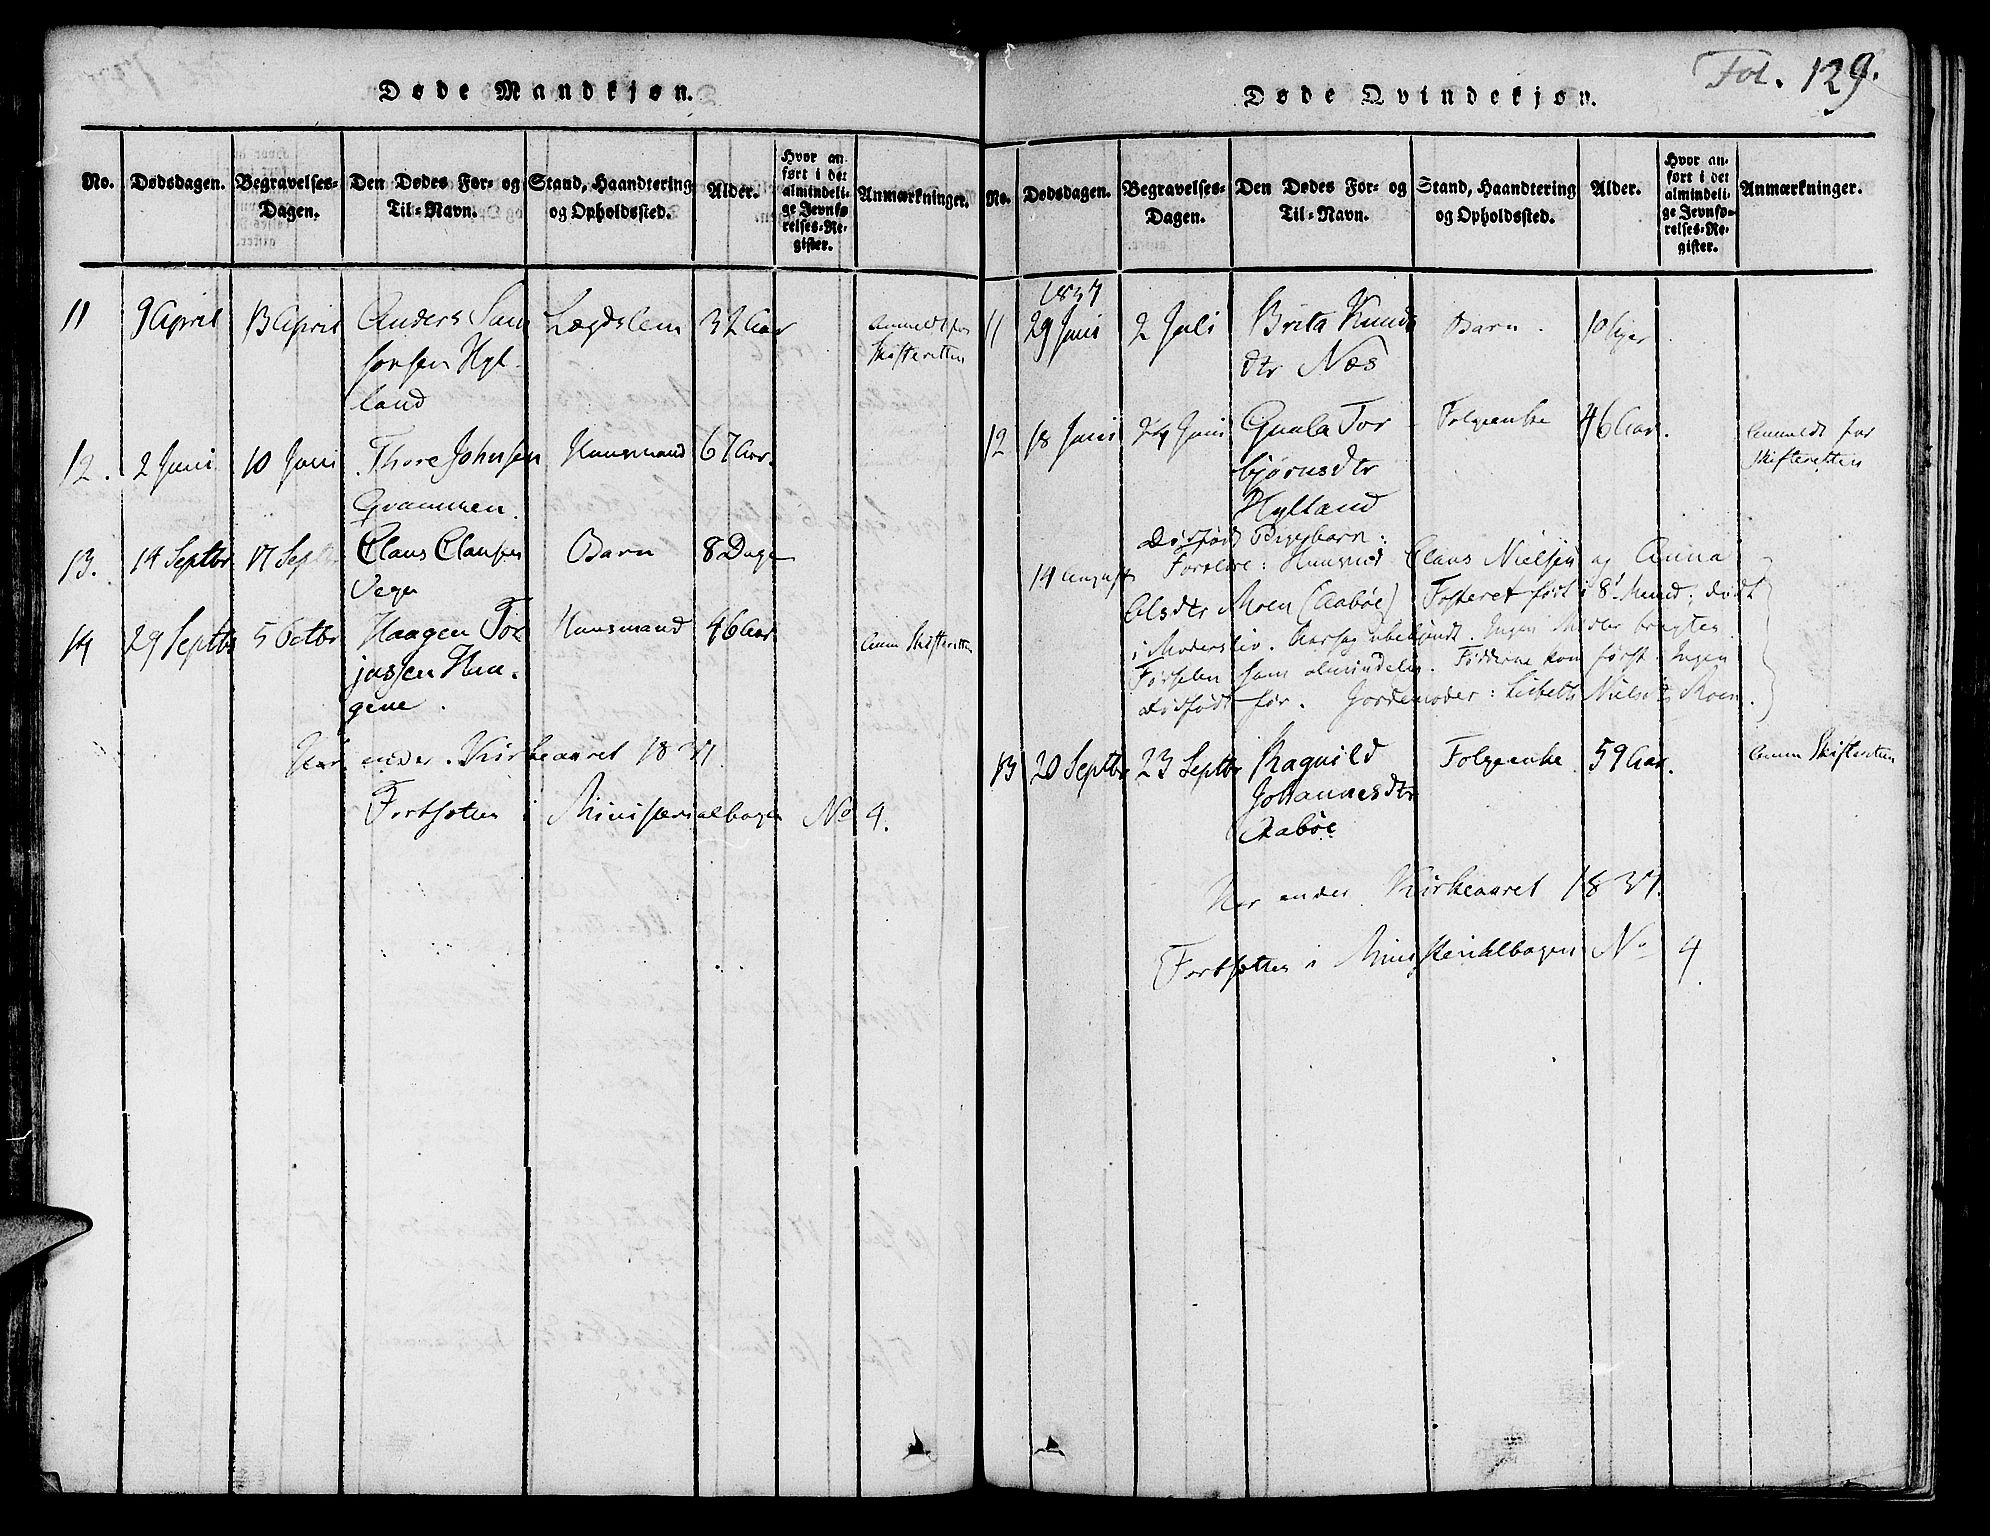 Døde Mandkjøn.
No. Dødsdagen. Begravelses-Dagen. Den Dødes For- og Til-Navn. Stand, Haandtering og Opholdssted. Alder. Hvor anført i det almindelige Jevnførelses-Register. Anmærkninger.
11 9 April 13 April Anders Sam Lægdslem 32 Aar Anmeldt for
sonsen Hyl- Skifteretten
land
12. 2 Juni 10 Juni Thore Johnsen Huusmand 67 Aar.
Grammen.
13. 14 Septbr 17 Septbr Claus Clausen Barn 8 Dage
Vege
14 29 Septbr 5 Octbr Haagen Tor Huusmand 46 Aar Anm Skifteretten
jussen Hau-
gene.
Her ender Kirkeaaret 1837.
Fortsættes i Ministerialbogen No 4.
Fol. 129.
Døde Qvindekjøn.
No. Dødsdagen. Begravelses-Dagen. Den Dødes For- og Til-Navn. Stand, Haandtering og Opholdssted. Alder. Hvor anført i det almindelige Jevnførelses-Register. Anmærkninger.
1837
11 29 Juni 2 Juli Brita Knuds Barn. 10 Uger
dtr Næs
12 18 Juni 24 Juni Gunla Tor Folgeenke 46 Aar. Anmeldt for
bjørnsdtr Skifteretten
Hylland
Dødfødt Pigebarn:
14 August Forældre: Huusmd Claus Nielsen og Anna
Olsdtr Moen (Aabøe) Fosteret født i 8d Maaned; dødt
i Modersliv. Aarsag ubekjendt. Ingen Midler brugtes.
Fødselen som almindelig. Fødderne kom først. Ingen
dødfødt før. Gjordemoder: Lisbeth Nielsdtr Moen.
13 20 Septbr 23 Septbr Ragnild Folgeenke 59 Aar. Anm Skifteretten
Johannesdtr
Aabøe
Her ender Kirkeaaret 1837.
Fortsættes i Ministerialbogen No 4